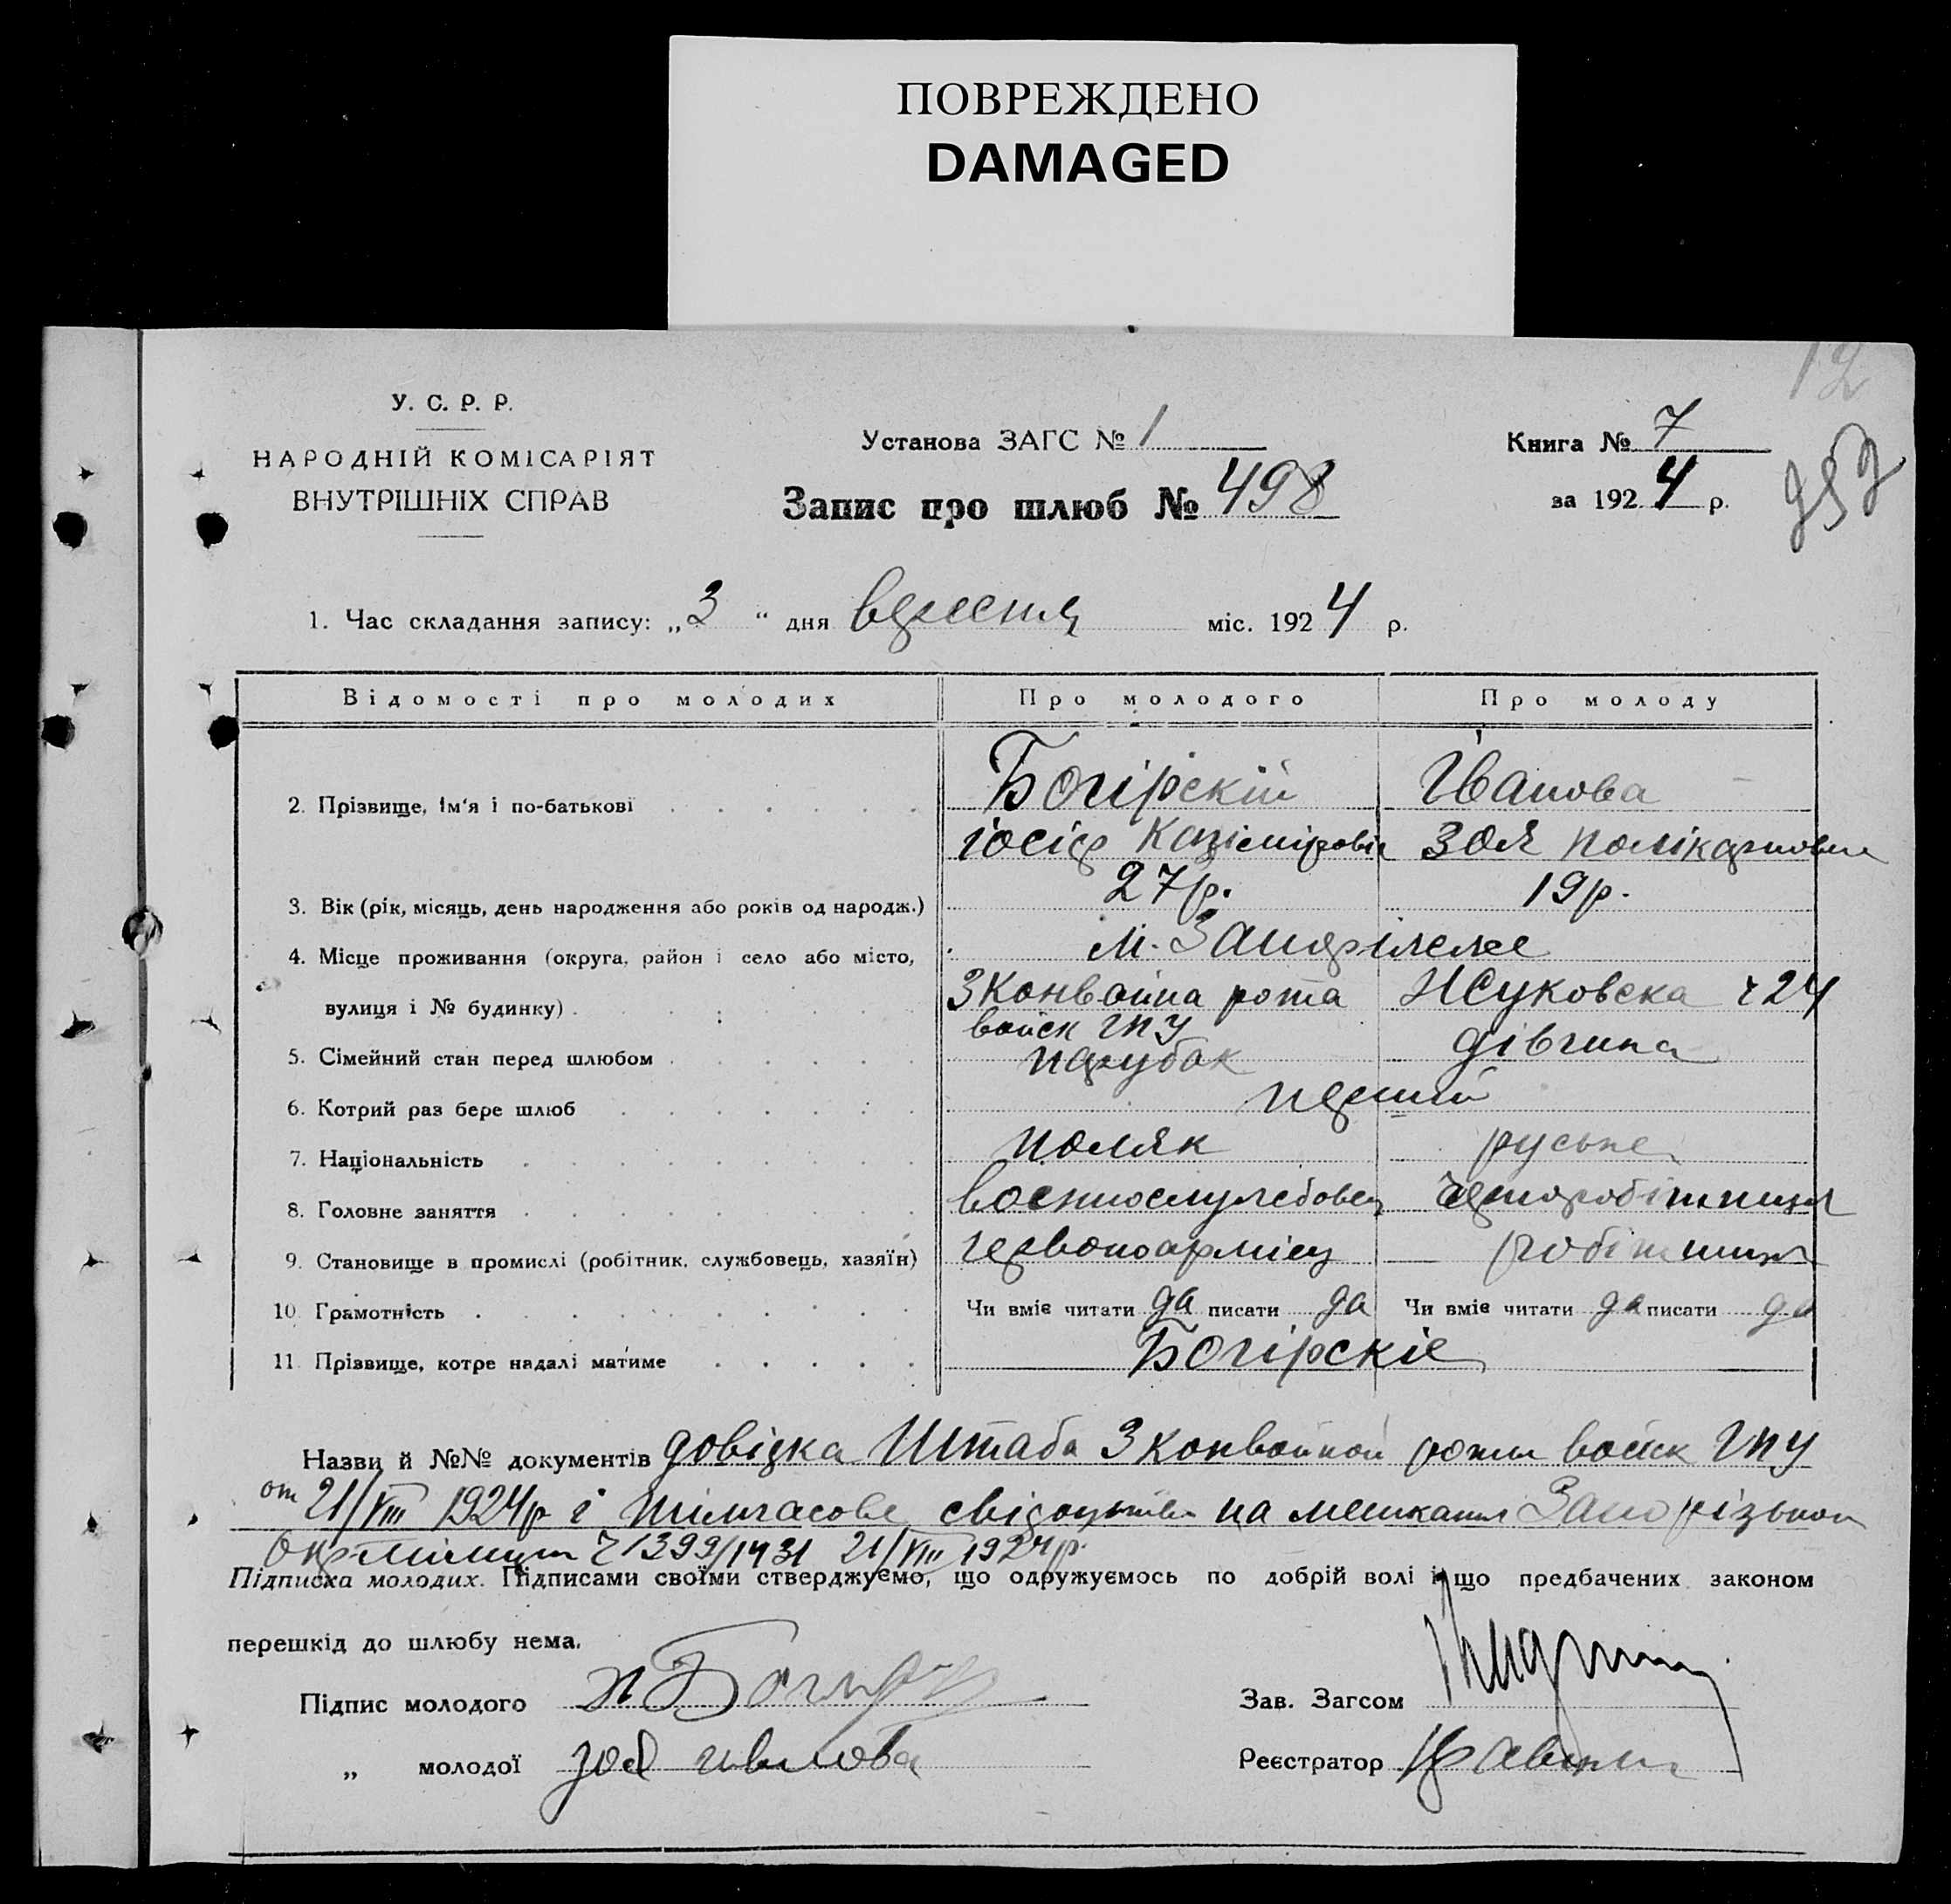 ПОВРЕЖДЕНО
DAMAGED
12
У. С. Р. Р.
НАРОДНІЙ КОМІСАРІЯТ
ВНУТРІШНІХ СПРАВ
Установа ЗАГС № 1
Запис про шлюб № 498
Книга № 7
за 1924 р.
1. Час складання запису: „3“ дня вересня міс. 1924 р.
Відомості про молодих Про молодого Про молоду
2. Прізвище, ім'я і по-батькові Богірскій Іванова
іосіф Казіміровіч Зоя Полікарповна
3. Вік (рік, місяць, день народження або років од народж.) 27 р. 19 р.
4. Місце проживання (округа, район і село або місто, м. Запоріжже
вулиця і № будинку) 3 Конвойна рота Жуковска ч 24
войск ГПУ
5. Сімейний стан перед шлюбом парубок дівчина
6. Котрий раз бере шлюб перший
7. Національність поляк руська
8. Головне заняття военнослужбовец чорноробітниця
9. Становище в промислі (робітник, службовець, хазяїн) червоноармієц робітниця
10. Грамотність Чи вміє читати да писати да Чи вміє читати да писати да
11. Прізвище, котре надалі матиме Богірскіе
Назви й №№ документів довідка Штаба 3 конвойной роти войск ГПУ
от 21/VIII 1924 р і тимчасове свідоцтво на мешкання Запорізькой
Окрміліции ч 1399/1431 21/VIII 1924 р.
Підписка молодих. Підписами своїми стверджуємо, що одружуємось по добрій волі і що предбачених законом
перешкід до шлюбу нема.
Підпис молодого Зав. Загсом
„ молодої зоя иванова Реєстратор